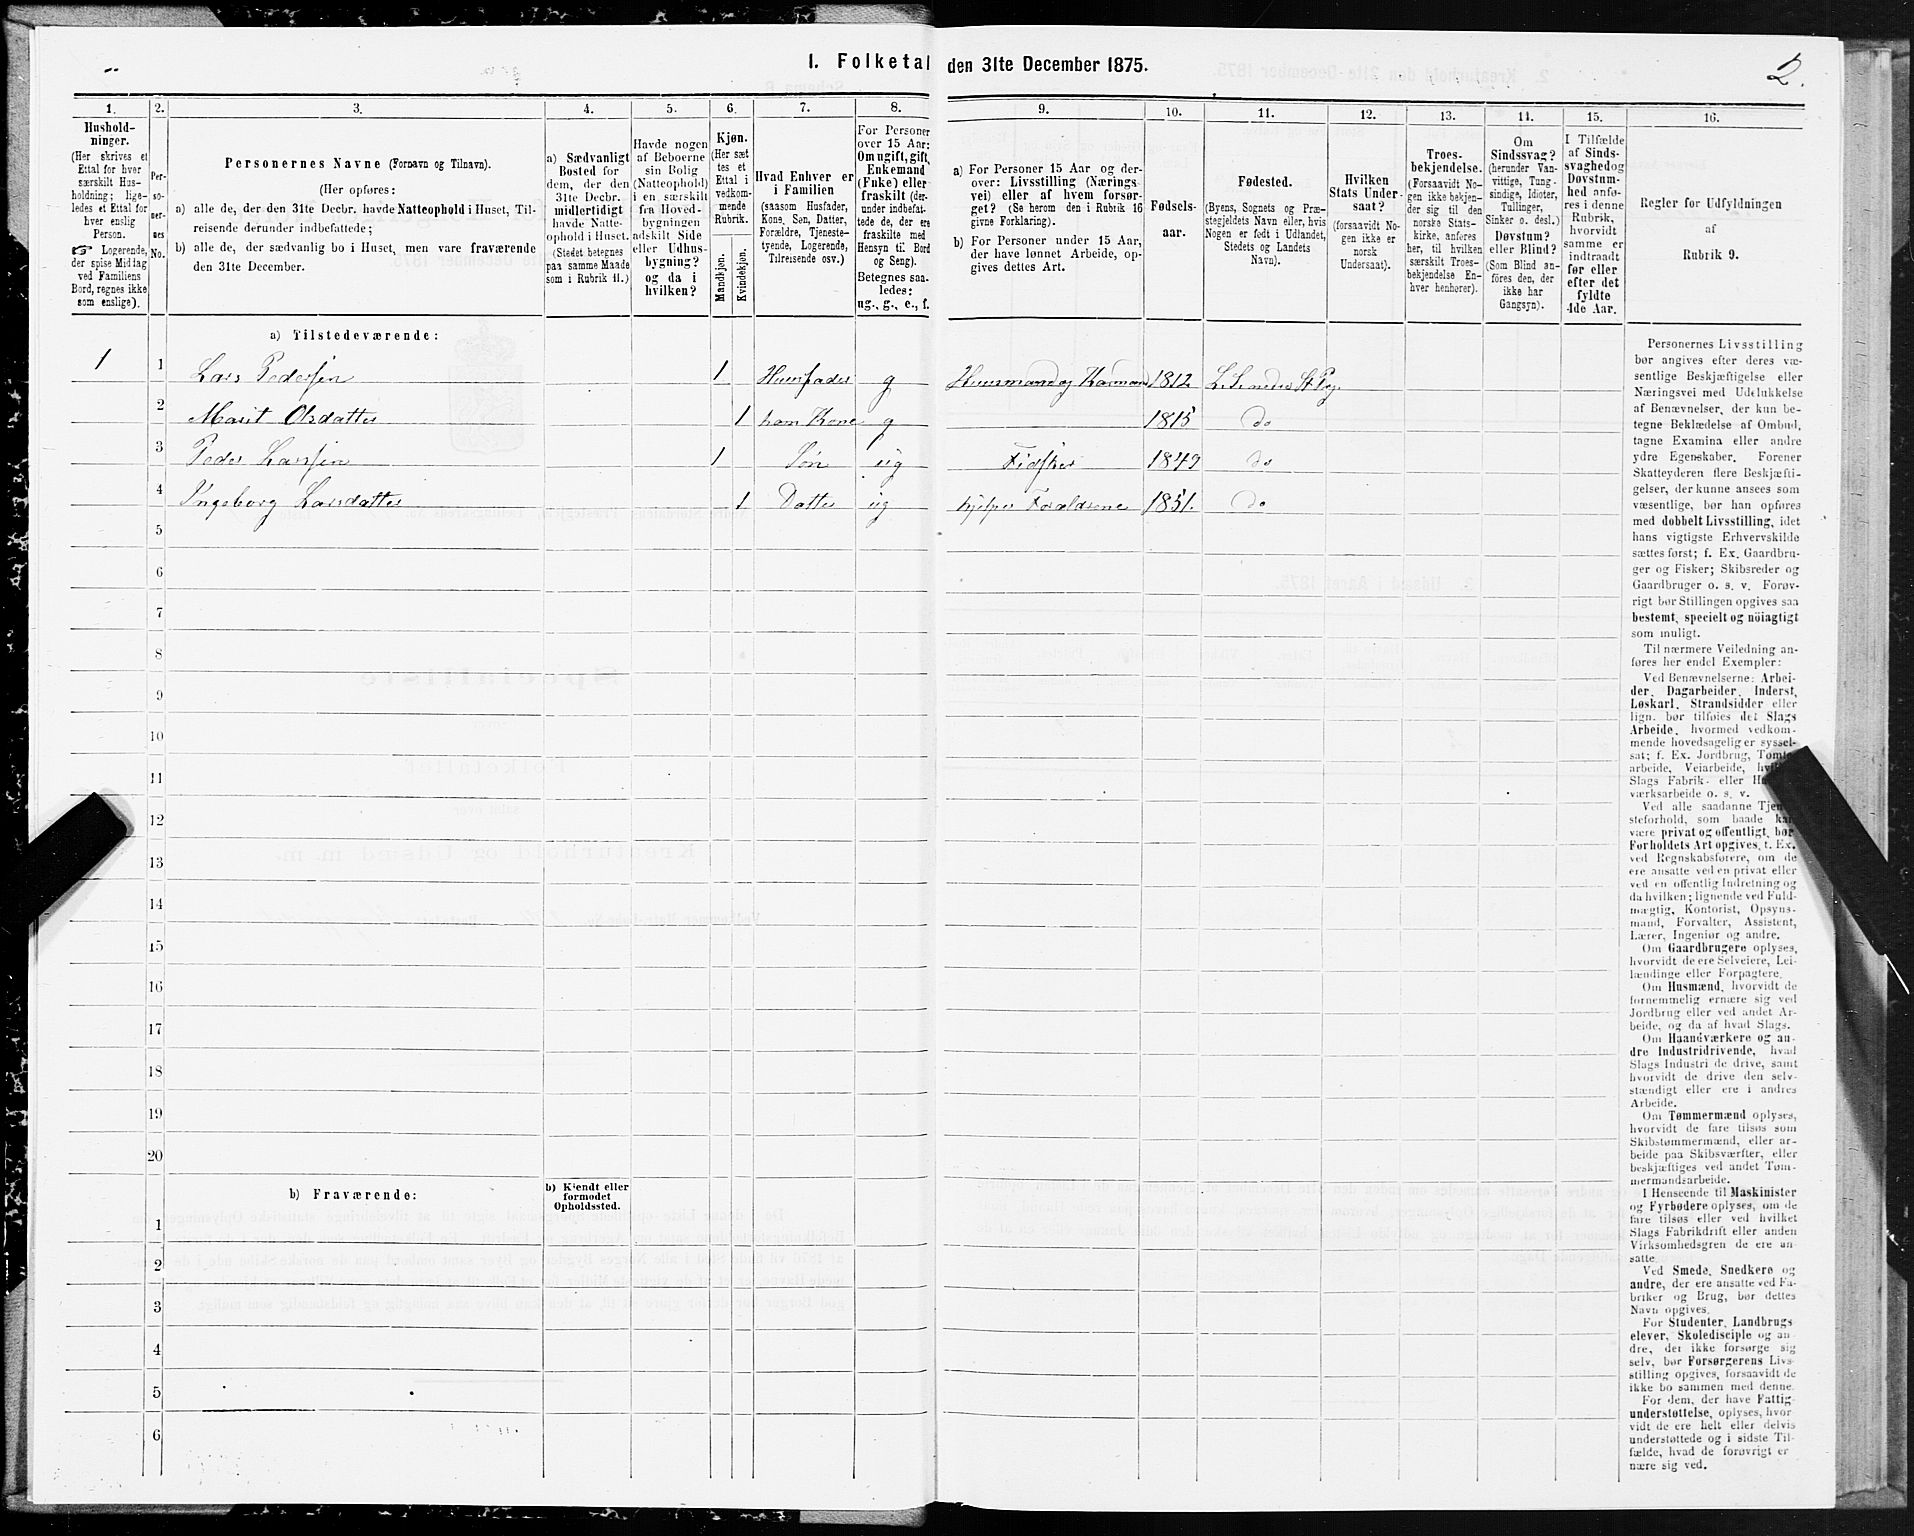 I. Folketal den 31te December 1875.
2.
1. 2. 3. 4. 5. 6. 7. 8. 9. 10. 11. 12. 13. 14. 15. 16.
Hushold-
ninger.
(Her skrives et
Ettal for hver
særskilt Hus-
holdning; lige-
ledes et Ettal for
hver enslig
Person.
☞ Logerende,
der spise Middag
ved Familiens
Bord, regnes ikke
som enslige).
Per-
so-
ner-
nes
No.
Personernes Navne (Fornavn og Tilnavn).
(Her opføres:
a) alle de, der den 31te Decbr. havde Natteophold i Huset, Til-
reisende derunder indbefattede;
b) alle de, der sædvanlig bo i Huset, men vare fraværende
den 31te December.
a) Sædvanligt
Bosted for
dem, der den
31te Decbr.
midlertidigt
havde Natte-
ophold i Huset.
(Stedet betegnes
paa samme Maade
som i Rubrik 11.)
Havde nogen
af Beboerne
sin Bolig
(Natteophold)
i en særskilt
fra Hoved-
bygningen
adskilt Side
eller Udhus-
bygning?
og da i
hvilken?
Kjøn.
(Her sæt
tes et
Ettal i
vedkom-
mende
Rubrik.
Mandkjøn.
Kvindekjøn.
Hvad Enhver er
i Familien
(saasom Husfader,
Kone, Søn, Datter,
Forældre, Tjeneste-
tyende, Logerende,
Tilreisende osv.)
For Personer
over 15 Aar:
Om ugift, gift,
Enkemand
(Enke) eller
fraskilt (der-
under indbefat-
tede de, der ere
fraskilte med
Hensyn til Bord
og Seng).
Betegnes saa-
ledes:
ug., g., e., f.
a) For Personer 15 Aar og der-
over: Livsstilling (Nærings-
vei) eller af hvem forsør-
get? (Se herom den i Rubrik 16
givne Forklaring).
b) For Personer under 15 Aar,
der have lønnet Arbeide, op-
gives dettes Art.
Fødsels-
aar.
Fødested.
(Byens, Sognets og Præ-
stegjeldets Navn eller, hvis
Nogen er født i Udlandet,
Stedets og Landets
Navn).
Hvilken
Stats Under-
saat?
(forsaavidt No-
gen ikke er
norsk
Undersaat).
Troes-
bekjendelse.
(Forsaavidt No-
gen ikke bekjen-
der sig til den
norske Stats-
kirke, anføres
her, til hvilken
særskilt Troes-
bekjendelse En-
hver henhører).
Om
Sindssvag?
(herunder Van-
vittige, Tung-
sindige, Idioter,
Tullinger,
Sinker o. desl.)
Døvstum?
eller Blind?
(Som Blind an-
føres den, der
ikke har
Gangsyn).
I Tilfælde
af Sinds-
svaghed og
Døvstum-
hed anfø-
res i denne
Rubrik,
hvorvidt
samme er
indtraadt
før eller
efter det
fyldte
4de Aar.
Regler for Udfyldningen
af
Rubrik 9.
a) Tilstedeværende:
1 1 Lars Pedersen 1 Huusfader g Huusmand og 1812
2 Marit Olsdatter 1 hans Kone g 1815 do
3 Peder Larssen 1 Søn ug Fidsker 1849 do
4 Ingeborg Larsdatter 1 Datter ug hjelper Forældrene 1851. do
5
6
7
8
9
10
11
12
13
14
15
16
17
18
19
20
b) Fraværende:
b) Kjendt eller
formodet
Opholdssted.
1
2
3
4
5
6
Personernes Livsstilling
bør angives efter deres væ-
sentlige Beskjæftigelse eller
Næringsvei med Udelukkelse
af Benævnelser, der kun be-
tegne Beklædelse af Ombud,
tagne Examina eller andre
ydre Egenskaber. Forener
Skatteyderen flere Beskjæfti-
gelser, der kunne ansees som
væsentlige, bør han opføres
med dobbelt Livsstilling, idet
hans vigtigste Erhvervskilde
sættes først; f. Ex. Gaardbru-
ger og Fisker; Skibsreder og
Gaardbruger o. s. v. Forøv-
rigt bør Stillingen opgives saa
bestemt, specielt og nöiagtigt
som muligt.
Til nærmere Veiledning an-
føres her endel Exempler:
Ved Benævnelserne: Arbei-
der, Dagarbeider, Inderst,
Løskarl, Strandsidder eller
lign. bør tilføies det Slags
Arbeide, hvormed vedkom-
mende hovedsagelig er syssel-
sat; f. Ex. Jordbrug, Tømmer-
arbeide, Veiarbeide,
Slags Fabrik- eller
værksarbeide o. s. v.
Ved alle saadanne
steforhold, som baade
være privat og offentligt, bør
Forholdets Art opgives, f. Ex.
ved Regnskabsførere, om de
ere ansatte ved en privat eller
ved en offentlig Indretning og
da hvilken; lignende ved Fuld-
mægtig, Kontorist, Opsyns-
mand, Forvalter, Assistent,
Lærer, Ingeniør og andre.
Om Gaardbrugere oplyses,
hvorvidt de ere Selveiere, Lei-
lændinge eller Forpagtere.
Om Husmænd, hvorvidt de
fornemmelig ernære sig ved
Jordbrug eller ved andet Ar-
beide, og da af hvad Slags.
Om Haandværkere og an-
dre Industridrivende, hvad
Slags Industri de drive, samt
hvorvidt de drive den selv-
stændigt eller ere i andres
Arbeide.
Om Tømmermænd oplyses,
hvorvidt de fare tilsøs som
Skibstømmermænd, eller ar-
beide paa Skibsværfter, eller
beskjæftiges ved andet Tøm-
mermandsarbeide.
I Henseende til Maskinister
og Fyrbødere oplyses, om de
fare tilsøs eller ved hvilket
Slags Fabrikdrift eller anden
Virksomhedsgren de ere an-
satte.
Ved Smede, Snedkere og
andre, der ere ansatte ved Fa-
briker og Brug, bør dettes
Navn opgives.
For Studenter, Landbrugs-
elever, Skoledisciple og an-
dre, der ikke forsørge sig
selv, bør Forsørgerens Livs-
stilling opgives, forsaavidt de
ikke bo sammen med denne.
For dem, der have Fattig-
understøttelse, oplyses, hvor-
vidt de ere helt eller delvis
understøttede og i sidste Til-
fælde, hvad de forøvrigt er-
nære sig ved.